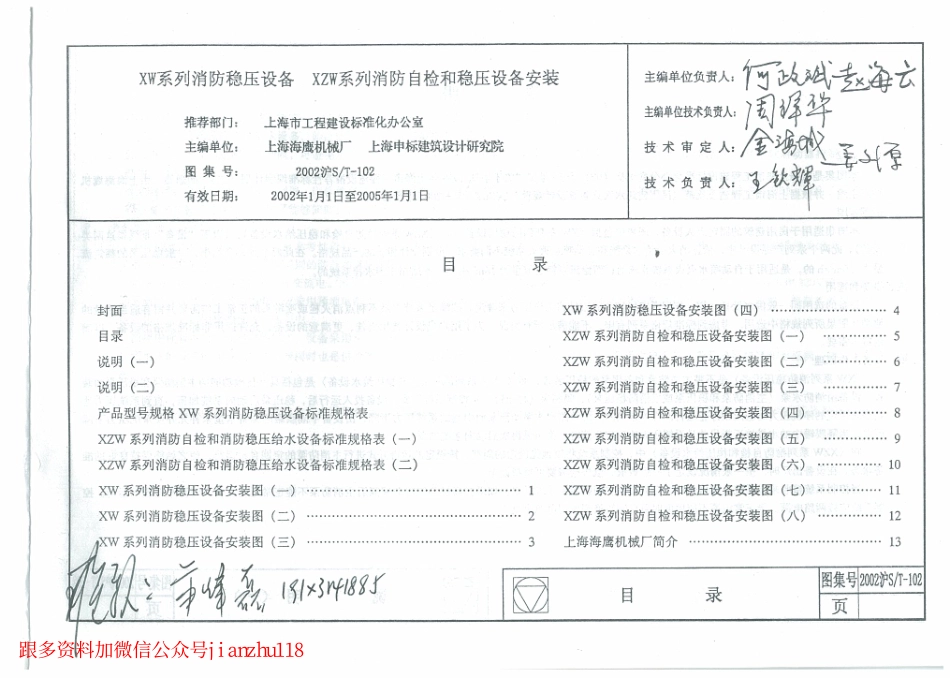 XW系列消防稳压设备 XZW系列消防自检和稳压设备安装
推荐部门： 上海市工程建设标准化办公室
主编单位： 上海海鹰机械厂 上海申标建筑设计研究院
图集号： 2002沪S/T-102
有效日期： 2002年1月1日至2005年1月1日
主编单位负责人：何政斌 赵海云
主编单位技术负责人：周锋华
技术审定人：
技术负责人：王钦辉
目 录
封面
目录
说明（一）
说明（二）
产品型号规格 XW系列消防稳压设备标准规格表
XZW系列消防自检和消防稳压给水设备标准规格表（一）
XZW系列消防自检和消防稳压给水设备标准规格表（二）
XW系列消防稳压设备安装图（一） 1
XW系列消防稳压设备安装图（二） 2
XW系列消防稳压设备安装图（三） 3
XW系列消防稳压设备安装图（四） 4
XZW系列消防自检和稳压设备安装图（一） 5
XZW系列消防自检和稳压设备安装图（二） 6
XZW系列消防自检和稳压设备安装图（三） 7
XZW系列消防自检和稳压设备安装图（四） 8
XZW系列消防自检和稳压设备安装图（五） 9
XZW系列消防自检和稳压设备安装图（六） 10
XZW系列消防自检和稳压设备安装图（七） 11
XZW系列消防自检和稳压设备安装图（八） 12
上海海鹰机械厂简介 13
目 录
图集号 2002沪S/T-102
页
跟多资料加微信公众号jianzhu118